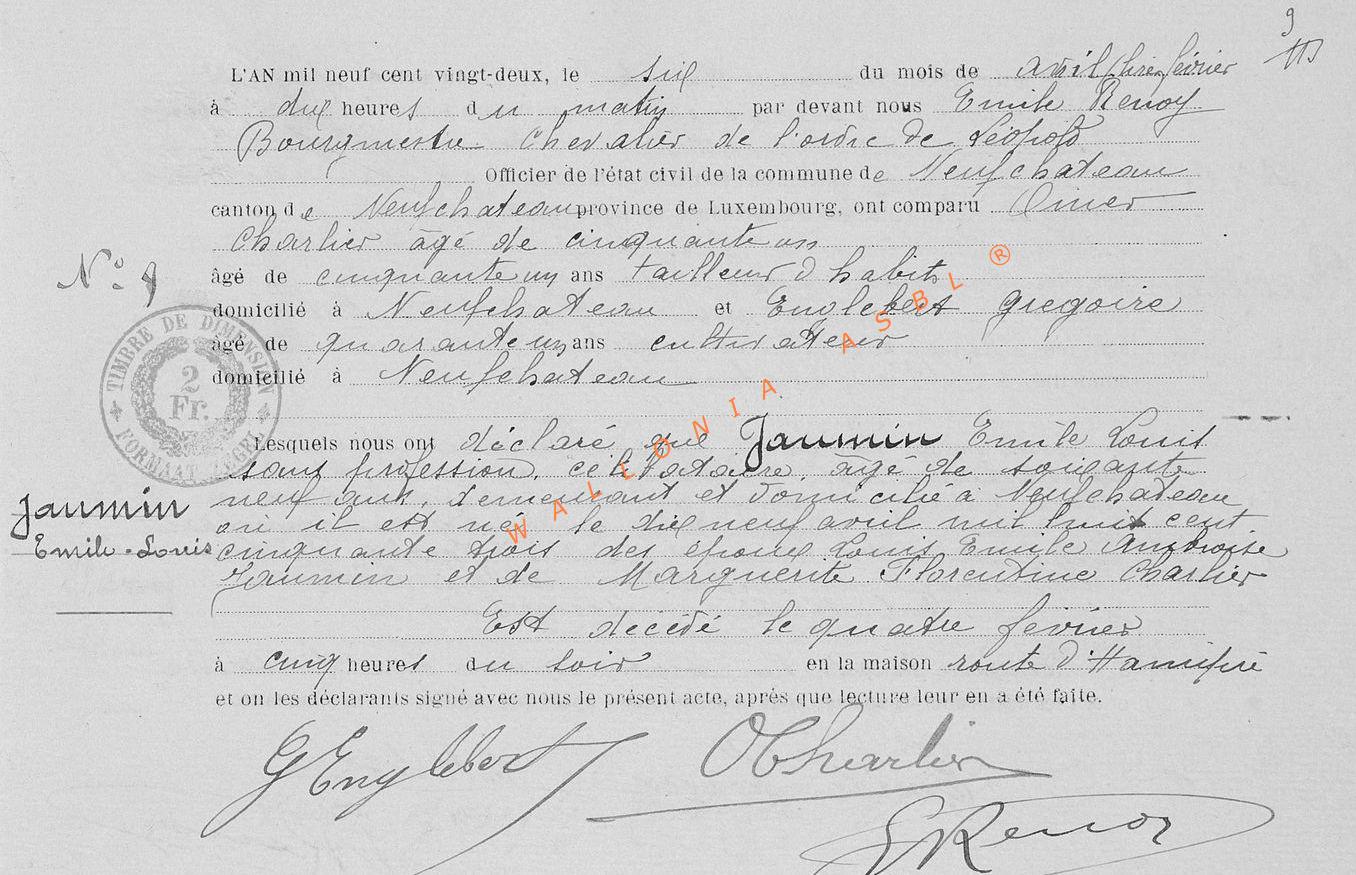 9
L'AN mil neuf cent vingt-deux, le six du mois de avril (lire février
à dix heures du matin par devant nous Emile Renoy
Bourgmestre Chevalier de l'ordre de Léopold
Officier de l'état civil de la commune de Neufchateau
canton de Neufchateau province de Luxembourg, ont comparu Omer
Charlier âgé de cinquante ans
N°
âgé de cinquante un ans tailleur d'habits
domicilié à Neufchateau et Englebert Gregoire
âgé de quarante un ans cultivateur
domicilié à Neufchateau
TIMBRE DE DIMENSION
2
Fr.
FORMAAT ZEGEL
Lesquels nous ont déclaré que Jaumin Emile Louis
sans profession, célibataire, âgé de soixante
neuf ans, demeurant et domicilié à Neufchateau
Jaumin
Emile-Louis
ou il est né le dix neuf avril mil huit cent
cinquante trois des époux Louis Emile Ambroise
Jaumin et de Marguerite Florentine Charlier
Est décédé le quatre février
à cinq heures du soir en la maison route d'Hamipré
et on les déclarants signé avec nous le présent acte, après que lecture leur en a été faite.
G Englebert OCharlier
E Renoy
WALLONIA ASBL ®